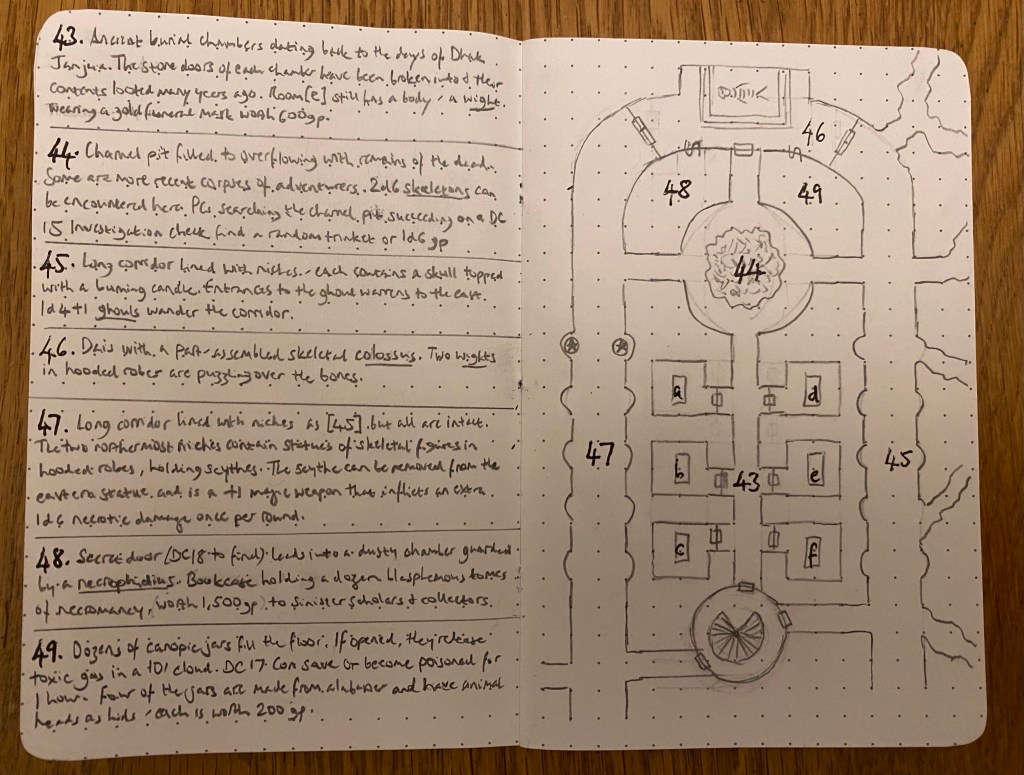 43. Ancient burial chambers dating back to the days of Dhak
Janjua. The stone doors of each chamber have been broken into & their
contents looted many years ago. Room [e] still has a body - a wight
wearing a gold funeral mask worth 600gp.
44. Charnel pit filled to overflowing with remains of the dead.
Some are more recent corpses of adventurers. 2d6 skeletons can
be encountered here. PCs searching the charnel pit, succeeding on a DC
15 Investigation check find a random trinket or 1d6 gp
45. Long corridor lined with niches - each contains a skull topped
with a burning candle. Entrances to the ghoul warrens to the east.
1d4+1 ghouls wander the corridor.
46. Dais with a part-assembled skeletal colossus. Two wights
in hooded robes are puzzling over the bones.
47. Long corridor lined with niches as [45] but all are intact.
The two northermost niches contain statues of skeletal figures in
hooded robes, holding scythes. The scythe can be removed from the
eastern statue, and is a +1 magic weapon that inflicts an extra
1d6 necrotic damage once per round.
48. Secret door (DC18 to find) leads into a dusty chamber guarded
by a necrophidius. Bookcase holding a dozen blasphemous tomes
of necromancy, worth 1,500gp to sinister scholars & collectors.
49. Dozens of canopic jars fill the floor. If opened, they release
toxic gas in a 10' cloud. DC17 Con save or become poisoned for
1 hour. Four of the jars are made from alabaster and have animal
heads as lids - each is worth 200gp.
46
48
49
44
a
d
47
b
43
e
45
c
f